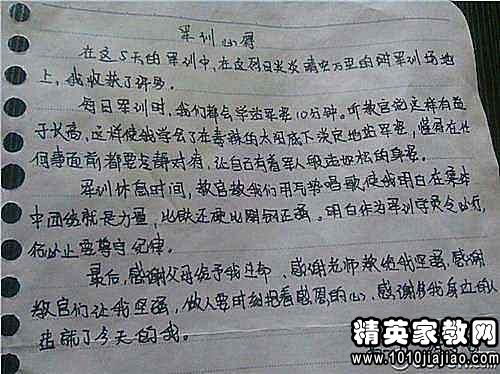 军训心得
在这5天的军训中,在这烈日炎炎晴空万里的
军训场地
上,我收获了许多。
每日军训时,我们都会学站军姿10分钟。听教官说这样有益
于长高,这样使我学会了在毒辣的太阳底下淡定地站军姿,懂得在任
何事面前都要冷静对待,让自己有着军人
的身姿。
军训休息时间,教官教我们用气势唱歌使我明白在集体
中团结就是力量,比铁还硬比钢还强。明白作为军训学员令必行,
禁必止要遵守纪律。
最后,感谢父母给予我生命、感谢老师教给我坚强,感谢
教官们让我坚强,做人要时刻抱着感恩的心,感谢
我身边的人
造就了今天的我。
精英家教网
www.1010jiajiao.com